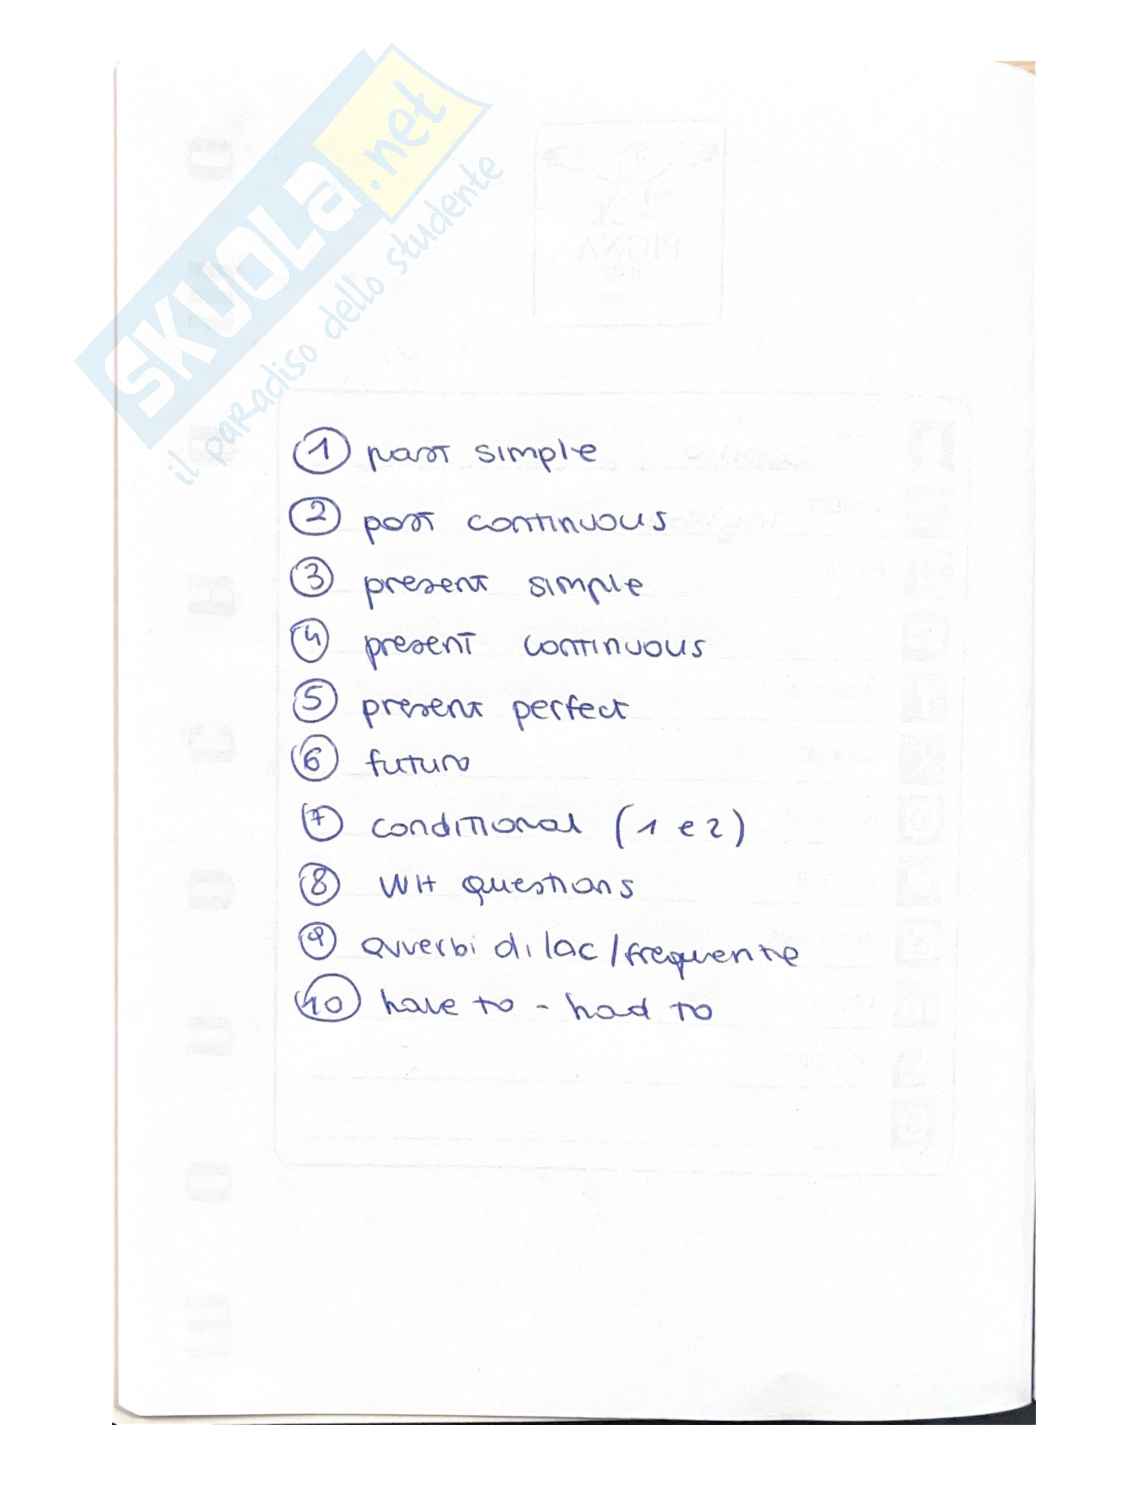 SKUOLA.net
il paradiso dello studente
1 past simple
2 past continuous
3 present simple
4 present continuous
5 present perfect
6 futuro
7 conditional (1 e 2)
8 WH questions
9 avverbi di loc/frequente
10 have to - had to